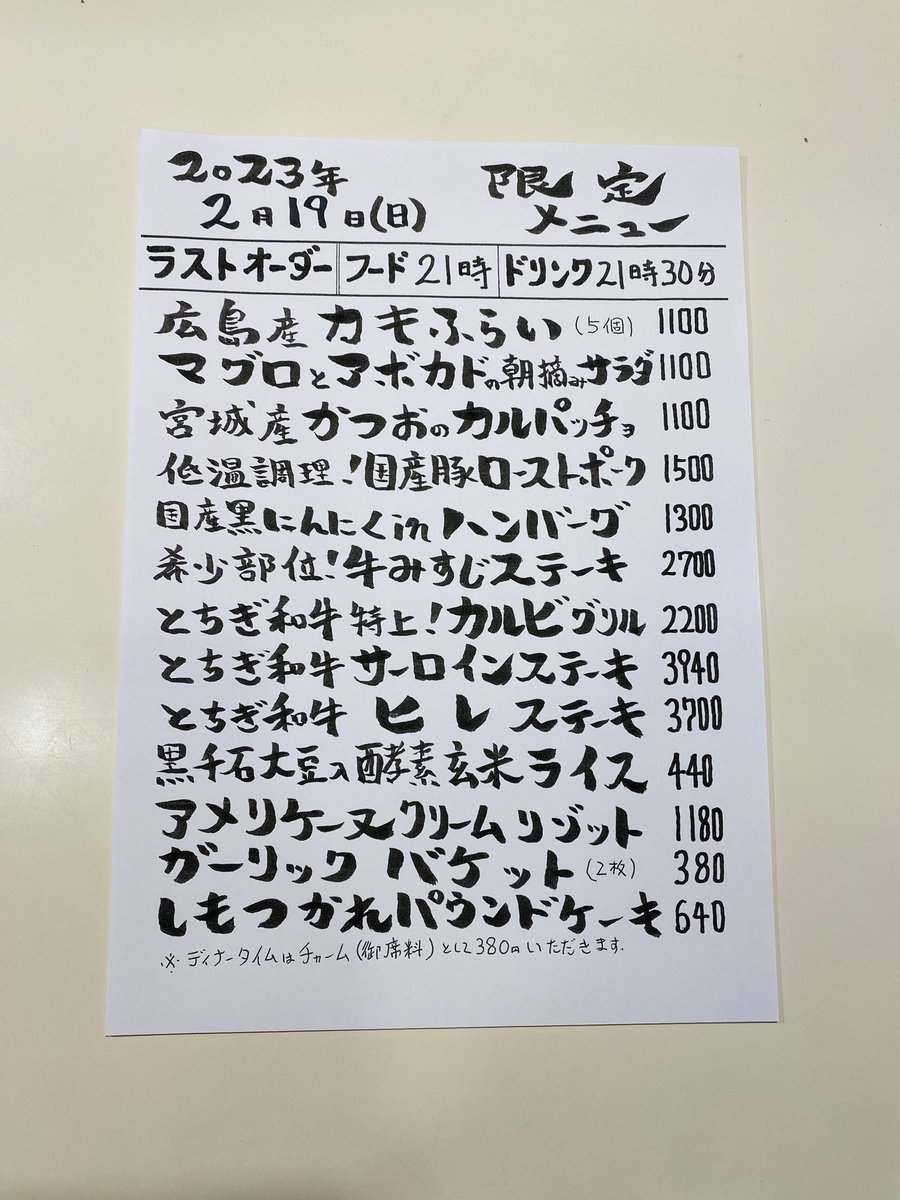 2023年
2月19日(日)
限定
メニュー
ラストオーダー フード21時 ドリンク21時30分
広島産カキふらい(5個) 1100
マグロとアボカドの朝摘みサラダ 1100
宮城産かつおのカルパッチョ 1100
低温調理!国産豚ローストポーク 1500
国産黒にんにくinハンバーグ 1300
希少部位!牛みすじステーキ 2700
とちぎ和牛特上!カルビグリル 2200
とちぎ和牛サーロインステーキ 3940
とちぎ和牛ヒレステーキ 3700
黒千石大豆入酵素玄米ライス 440
アメリケーヌクリームリゾット 1180
ガーリックバケット(2枚) 380
しもつかれパウンドケーキ 640
※ディナータイムはチャーム(御席料)として380円いただきます.